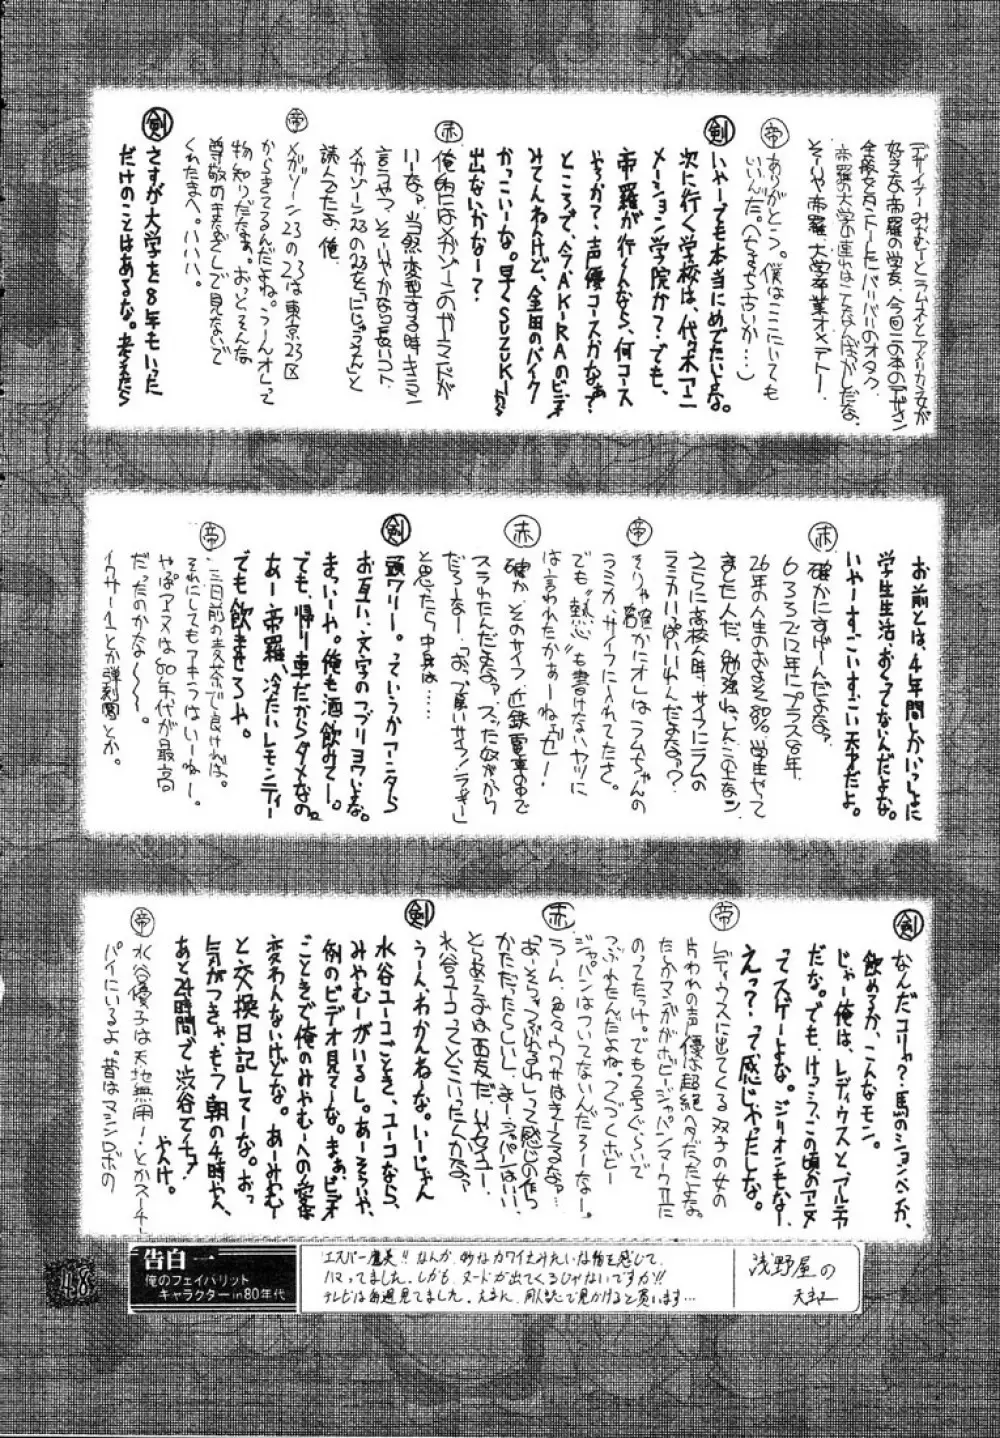 デザイナーみやむーとラムネとアメリカ女が
好きな帝羅の学友、今回この本のデザイン
全般女気ゼロトータルバリバリのオタク、
帝羅の大学の連れはこんなんばかしだな、
そーりゃ帝羅、大学卒業オメデトー。
帝 ありがとう。僕はここにいても
いいんだ。(ちまち古いか…)
剣 いやーでも本当にめでたいよな。
次に行く学校は、代々木アニ
メーション学院か?でも、
帝羅が行くんなら、何コース
やろか?声優コースかなぁ?
ところで、今AKIRAのビデオ
みてんねんけど、金田のバイク
かっこいーな。早くSUZUKIから
出ないかなー?
赤 俺的にはメガゾーンのガーランドが
いーなぁ。当然変型する時キーン
言うやつ、そーいやかなり長いコト
メガゾーン23の23を「にじゅうさん」と
読んでたよ、俺。
帝 メガゾーン23の23は東京23区
からきてるんだよね。うーんオレって
物知りだなぁ。おっとそんな
尊敬のまなざしで見ないで
くれたまへ。ハハハ。
剣 さすが大学を8年もいった
だけのことはあるな。考えたら
お前とは、4年間しかいっしょに
学生生活おくってないんだよな。
いやーすごいすごい天才だよ。
赤 確かにすげーんだよなァ
6332で12年にプラス8年
26年の人生のおよそ80%学生やって
ました人だ、勉強ねっしんこの上なし
さらに高校ん時、サイフにラムの
ラミカいっぱいいれてんだよなァ?
帝 そりゃ確かにオレはラムちゃんの
ラミカ、サイフに入れてたさ。
でも"熱心"も書けないヤツに
は言われたかぁーねぇぜ!
赤 確か、そのサイフ近鉄電車の中で
スラれたんだよなァ。スった奴がから
だろーなー、「おっ、厚いサイフ!ラッキー」
と思てたら中身は……
剣 頭ワリー。っていうかアニタら
お互い、文字のつブリヨワいよな。
まっいーや。俺も酒飲みてー。
でも、帰り車だからダメなの。
あー帝羅、冷たいレモンティー
でも飲ませろや。
帝 三日前の麦茶で良ければ。
それにしてもアキラはいーねー。
やっぱアニメは80年代が最高
だったのかな〜〜〜。
イクサー1とか弾劾凰とか。
剣 なんだコリャ?馬のションベンか、
飲めるか、こんなモン。
じゃー俺は、レディウスと、アルテ
だな。でも、けっこう、この頃のアニメ
ってスゲーよな。ジリオンもなー
えっ?って感じやったしな。
帝 レディウスに出てくる双子の女の
片われの声優は超絶へタだったよな。
たしかマンガがホビージャパンマークⅡに
のってたっけ。でも7号ぐらいで
つぶれたんだよね。つくづくホビー
ジャパンはついてないんだろーなー。
赤 うーん、色々ウワサはきてるなァ…
「あーそっ、つぶれるわ」って感じの作り
かただったらしいし、まージャパンはいい、
とりあえずは西友だ、じゃなくて
水谷ユーコってどこいったんかなァ?
剣 うーん、わかんねーな。いーじゃん
水谷ユーコごとき、ユーコなら、
みやむーがいるし。あーそういや、
例のビデオ見てーな。まぁ、ビデオ
ごときで俺のみやむーへの愛は
変わんないけどな。あーみやむー
と交換日記してーな。おっ
気がつきゃ、もう朝の4時やん、
あと24時間で渋谷でチュ!
やんけ。
帝 水谷優子は天地無用!とかスーチー
パイにいるよ。昔はマシンロボの
48
告白一
俺のフェイバリット
キャラクターin80年代
エスパー魔美!!なんか、妙なカワイさみたいな物を感じて
ハマってました。しかも、ヌードが出てくるじゃないですか!!
テレビは毎週見てました。
浅野屋の